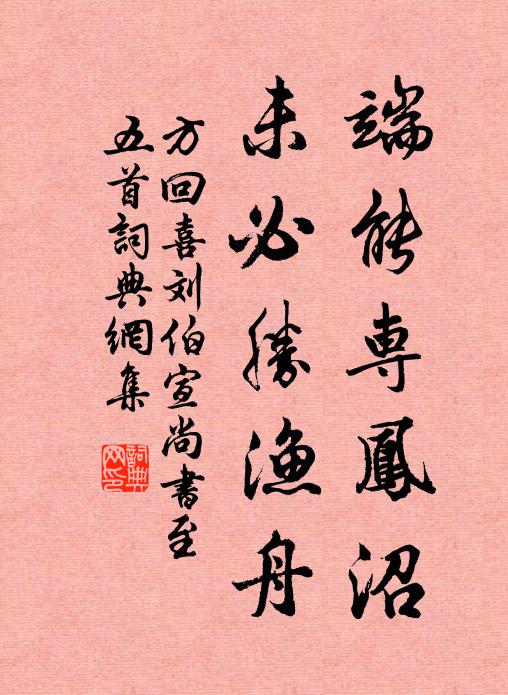 端能専鳳沼
未必勝漁舟
方回喜刘伯宣尚書至
五首詞典網集
詞典
网印